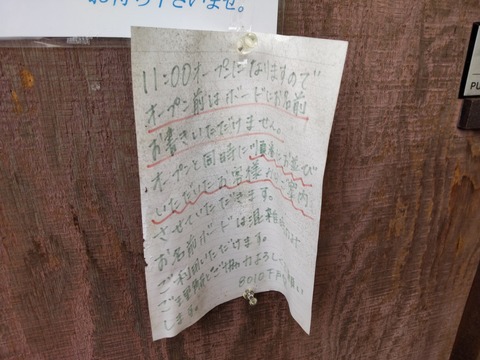 お待ち下さいませ。
11:00オープンになりますので
オープン前はボードにお名前
お書きいただけません。
オープンと同時に順番にお並び
いただいたお客様からご案内
させていただきます。
お名前ボードは混雑
ご利用いただけます。
ご理解とご協力よろしく
お願い
します。
PU